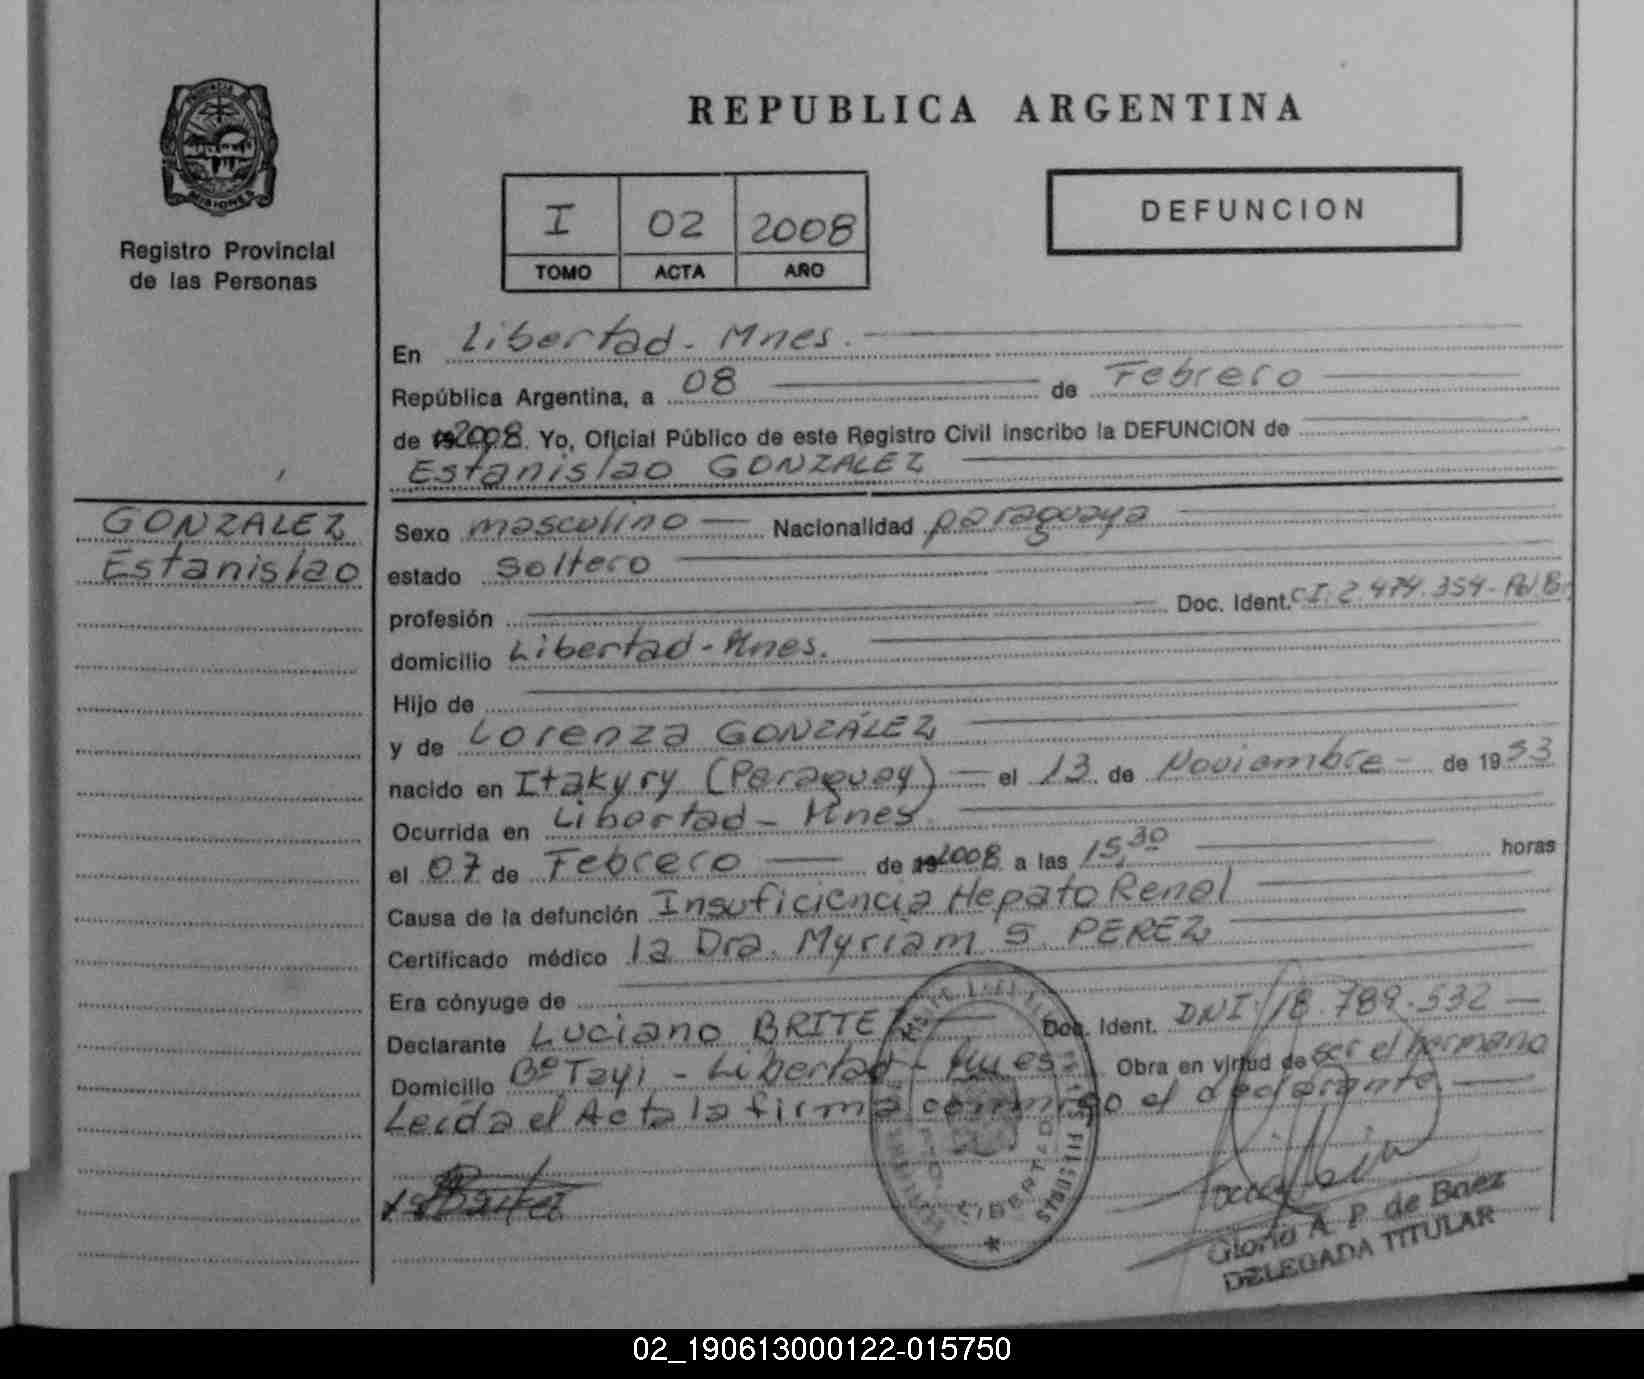 REPUBLICA ARGENTINA
PROVINCIA DE
MISIONES
Registro Provincial
de las Personas
I 02 2008
TOMO ACTA AÑO
DEFUNCION
En Libertad - Mnes.
República Argentina, a 08 de Febrero
de 192008. Yo, Oficial Público de este Registro Civil inscribo la DEFUNCION de
Estanislao GONZALEZ
GONZALEZ
Estanislao
Sexo masculino Nacionalidad paraguaya
estado Soltero
profesión Doc. Ident. CI. 2.474.354-
domicilio Libertad - Mnes.
Hijo de
y de Lorenza GONZÁLEZ
nacido en Itakyry (Paraguay) el 13 de Noviembre - de 1953
Ocurrida en Libertad - Mnes.
el 07 de Febrero de 192008 a las 15,30 horas
Causa de la defunción Insuficiencia Hepato Renal
Certificado médico la Dra. Myriam S. PEREZ
Era cónyuge de
Declarante Luciano BRITEZ Doc. Ident. DNI. 18.789.532
Domicilio Bº Tayi - Libertad - Mnes Obra en virtud de ser el hermano
Leída el Acta la firma conmigo el declarante
LIBERTAD
Gloria A. P. de Baez
DELEGADA TITULAR
02_190613000122-015750